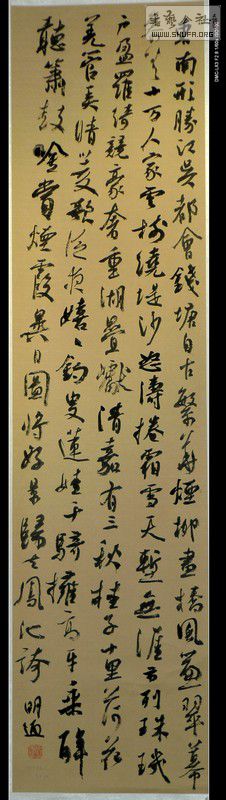 東南形勝江吳都會錢塘自古繁華煙柳畫橋風簾翠幕
參差十万人家雲樹繞堤沙怒濤捲霜雪天塹無涯市列珠璣
户盈羅綺競豪奢重湖疊巘清嘉有三秋桂子十里荷花
羌管弄晴菱歌泛夜嬉〻釣叟蓮娃千騎擁高牙乘醉
聽簫鼓吟賞煙霞異日圖將好景歸去鳳池誇 明
WWW.SHUFA.ORG
DMC-LX3 F2.8